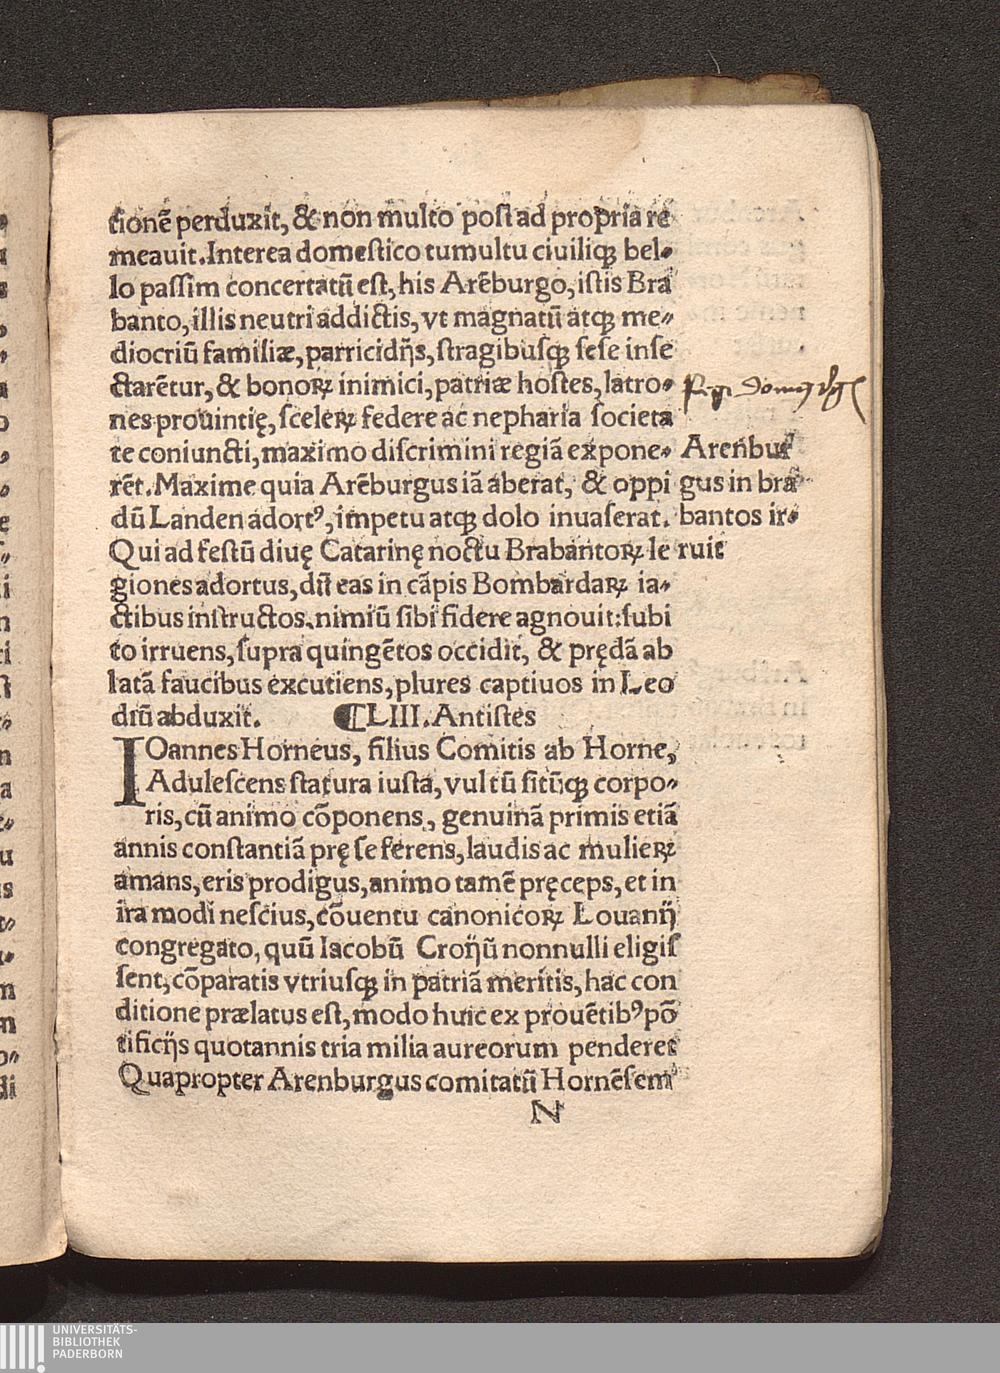 tionē perduxit, & non multo post ad propria re
meauit. Interea domestico tumultu ciuiliqꝫ bel⸗
lo passim concertatū est, his Arēburgo, istis Bra
banto, illis neutri addictis, vt magnatū atqꝫ me⸗
diocriū familiæ, parricidijs, stragibusqꝫ sese inse
ctarētur, & bonoꝝ inimici, patriæ hostes, latro⸗
nes prouintię, sceleꝝ federe ac nepharia societa
te coniuncti, maximo discrimini regiā expone⸗
rēt. Maxime quia Arēburgus iā aberat, & oppi
dū Landen adortꝰ, impetu atqꝫ dolo inuaserat.
Qui ad festū diuę Catarinę noctu Brabantoꝝ le
giones adortus, dū eas in cāpis Bombardaꝝ ia⸗
ctibus instructos, nimiū sibi fidere agnouit: subi
to irruens, supra quingētos occidit, & prędā ab
latā faucibus excutiens, plures captiuos in Leo
diū abduxit. ⸿LIII. Antistes
IOannes Horneus, filius Comitis ab Horne,
Adulescens statura iusta, vultū sitūqꝫ corpo⸗
ris, cū animo cōponens, genuinā primis etiā
annis constantiā pręse ferens, laudis ac mulieꝝ
amans, eris prodigus, animo tamē pręceps, et in
ira modi nescius, cōuentu canonicoꝝ Louanij
congregato, quū Iacobū Croijū nonnulli eligis
sent, cōparatis vtriusqꝫ in patriā meritis, hac con
ditione prælatus est, modo huic ex prouētibꝰ pō
tificijs quotannis tria milia aureorum penderet
Quapropter Arenburgus comitatū Hornēsem
N
Arenbur
gus in bra
bantos ir⸗
ruit
UNIVERSITÄTS-
BIBLIOTHEK
PADERBORN